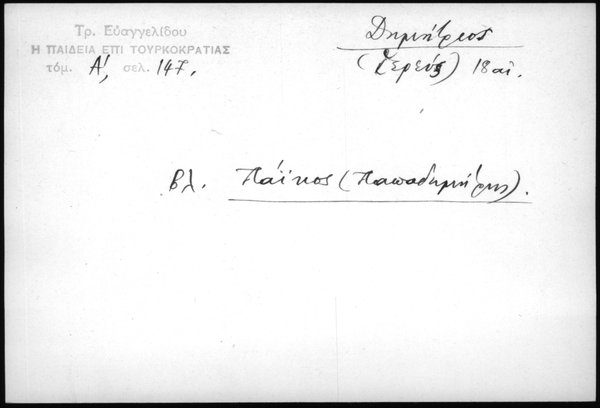 Τρ. Εὐαγγελίδου
Η ΠΑΙΔΕΙΑ ΕΠΙ ΤΟΥΡΚΟΚΡΑΤΙΑΣ
τόμ. Α', σελ. 147.
Δημήτριος
(ἱερεύς) 18 αἰ.
βλ. Πάϊκος (Παπαδημήτρης).